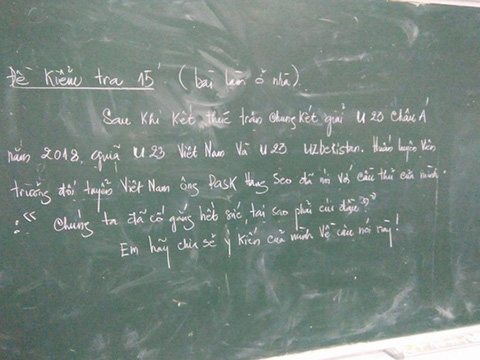 Đề kiểm tra 15'. (bài làm ở nhà).
Sau khi kết thúc trận chung kết giải U23 Châu Á
năm 2018, giữa U23 Việt Nam và U23 Uzbekistan. Huấn luyện viên
trưởng đội tuyển Việt Nam ông Pask Hang Seo đã nói với cầu thủ của mình
: "Chúng ta đã cố gắng hết sức, tại sao phải cúi đầu"
Em hãy chia sẻ ý kiến của mình về câu nói này!